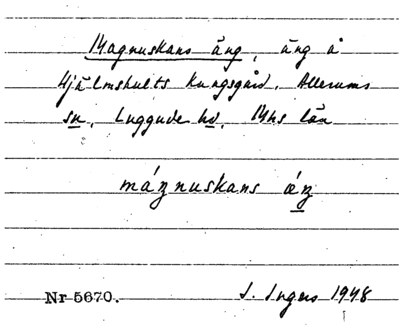 Magnuskans äng, äng å
Hjälmshults Kungsgård, Allerums
sn, Luggude hd, Mhs län
máŋnuskans ǽŋ
Nr 5670.
I. Ingers 1948